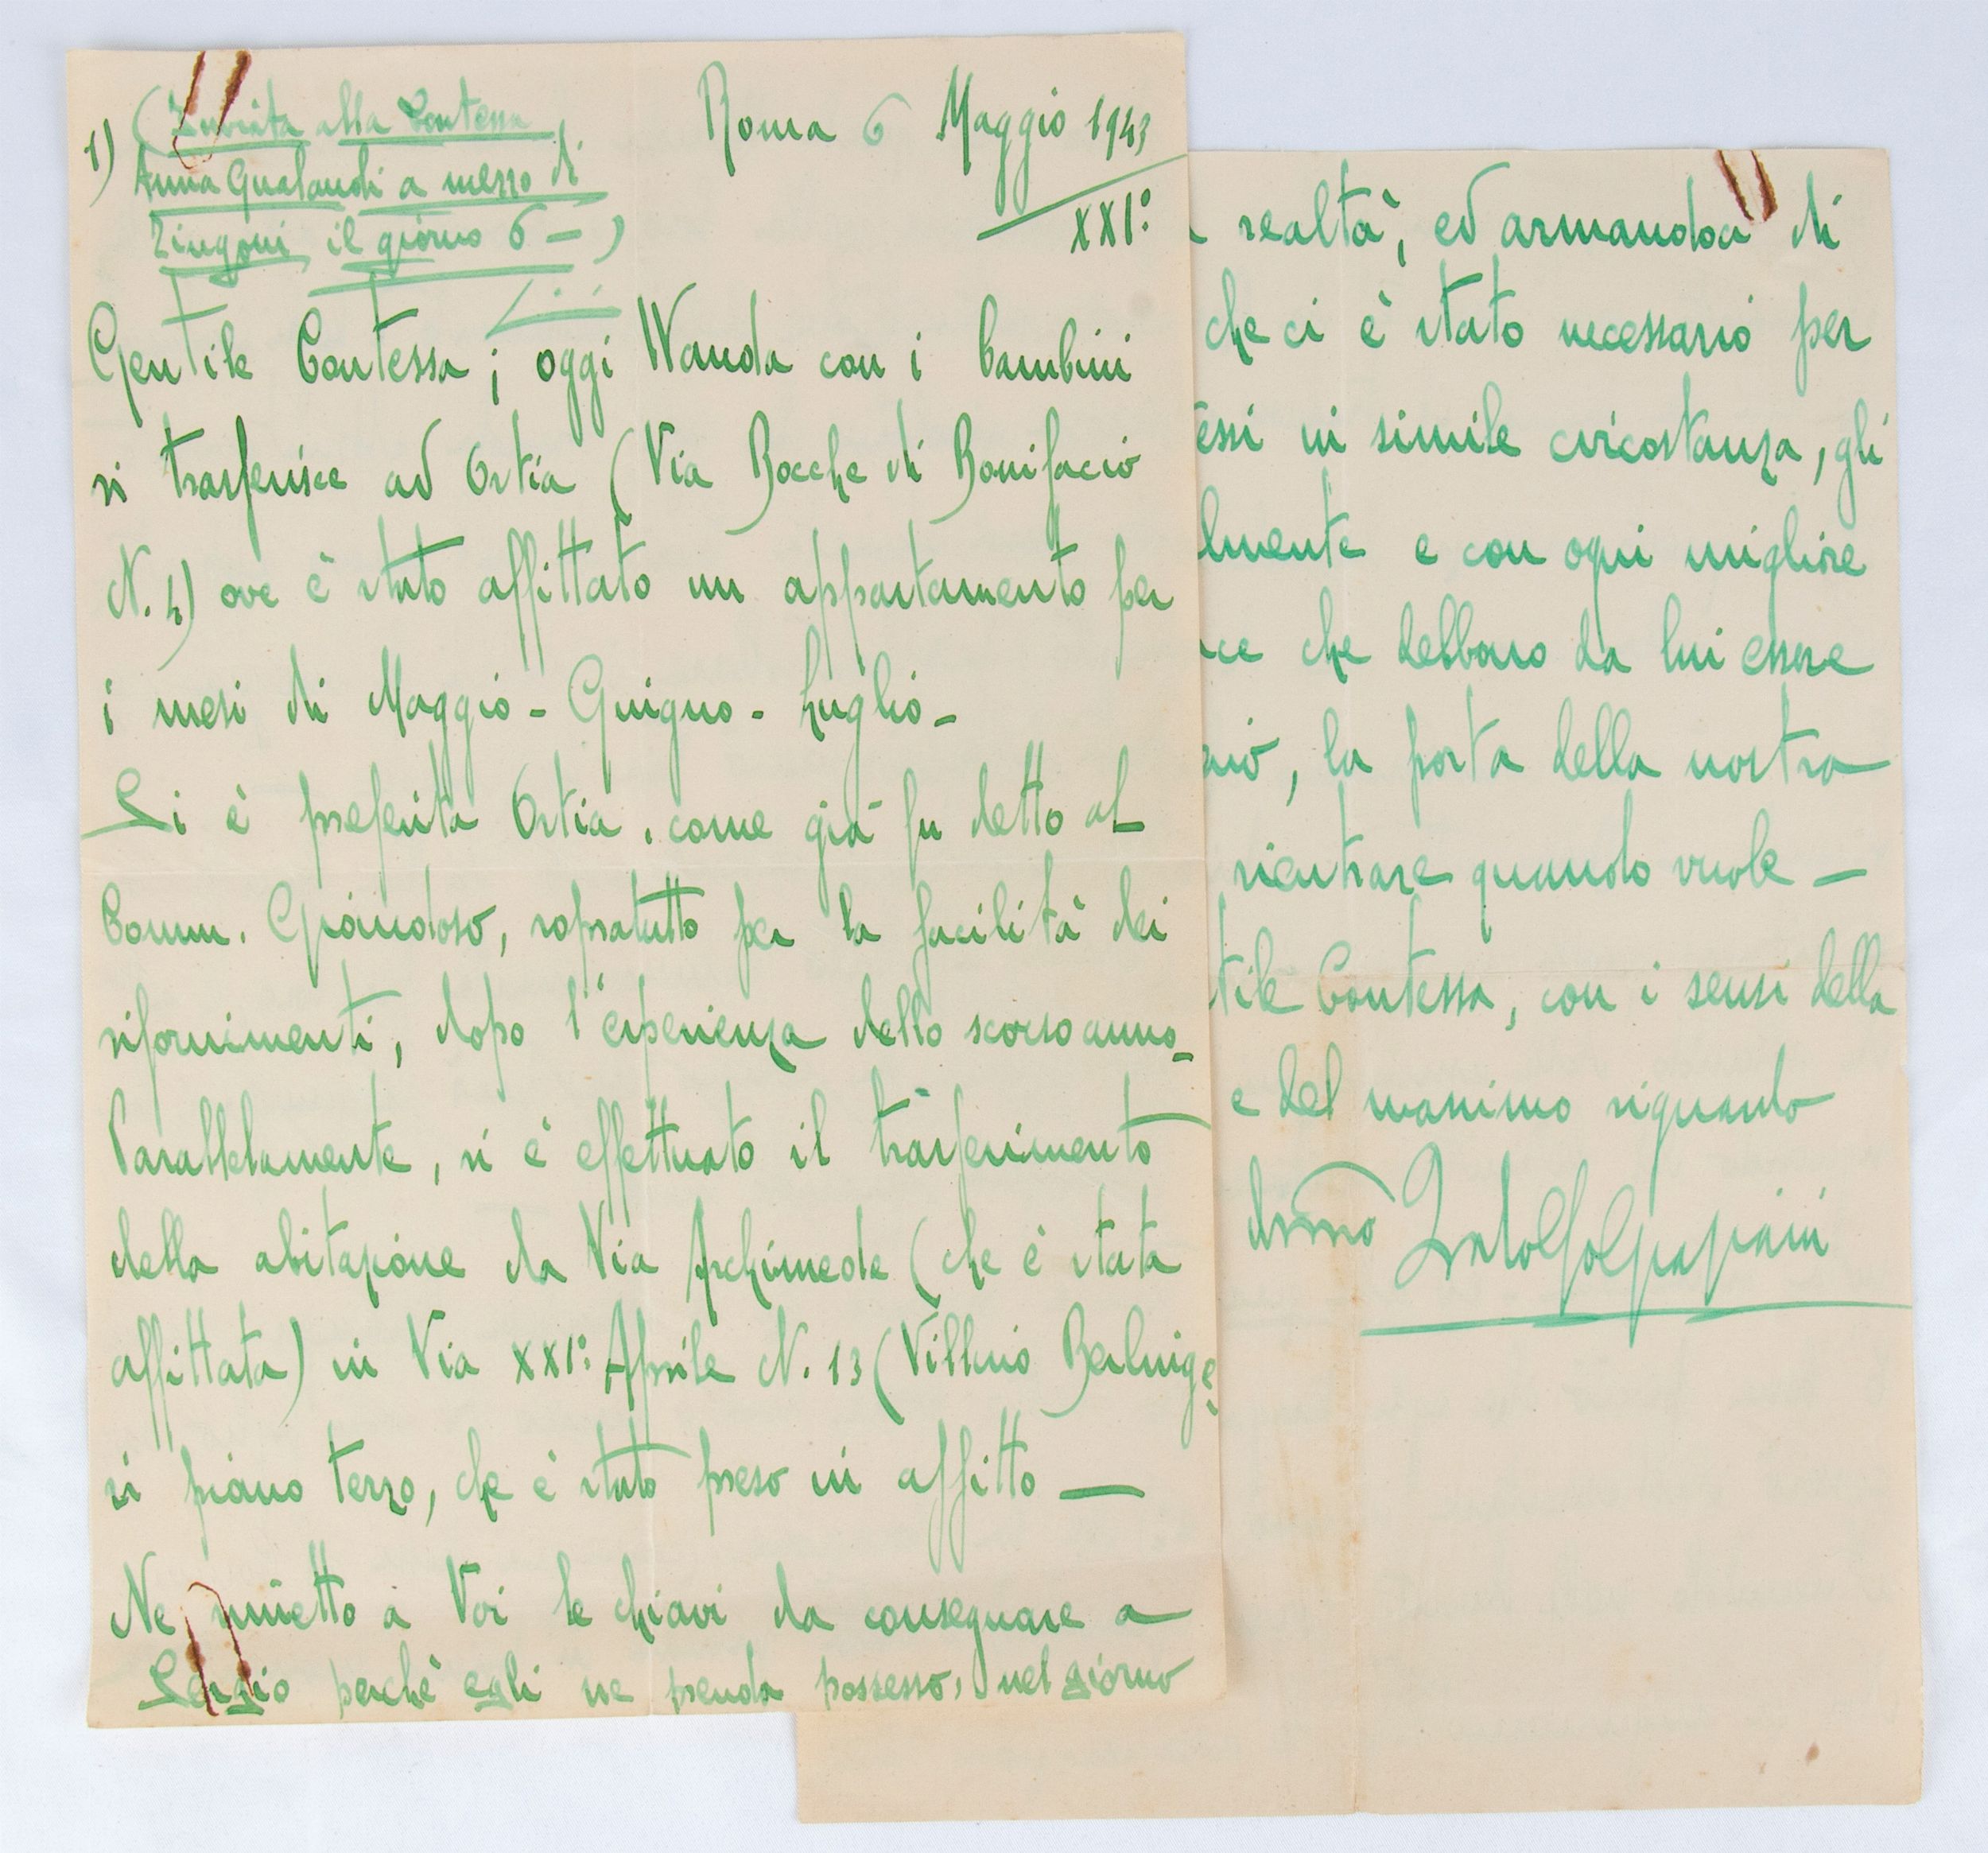 1) (Inviata alla Contessa
Anna Gualandi a mezzo di
Zingoni il giorno 6 — )
Roma 6 Maggio 1943
XXI°
Gentile Contessa; oggi Wanda con i bambini
si trasferisce ad Ostia (Via Bocche di Bonifacio
N. 4) ove è stato affittato un appartamento per
i mesi di Maggio - Giugno - Luglio -
Si è preferita Ostia, come già fu detto al
Comm. sopratutto per la facilità dei
rifornimenti, dopo l'esperienza dello scorso anno -
Parallelamente, si è effettuato il trasferimento
della abitazione da Via Archimede (che è stata
affittata) in Via XXI° Aprile N. 13 (Villino Berlinge
ri piano terzo, che è stato preso in affitto —
Ne rimetto a Voi le chiavi da consegnare a
Sergio perchè egli ne prenda possesso, nel giorno
realtà, ed armandoci di
che ci è stato necessario per
essi in simile circostanza, gli
lmente e con ogni migliore
ce che debbano da lui essere
, la porta della nostra
rientrare quando vuole —
tile Contessa, con i sensi della
e del massimo riguardo